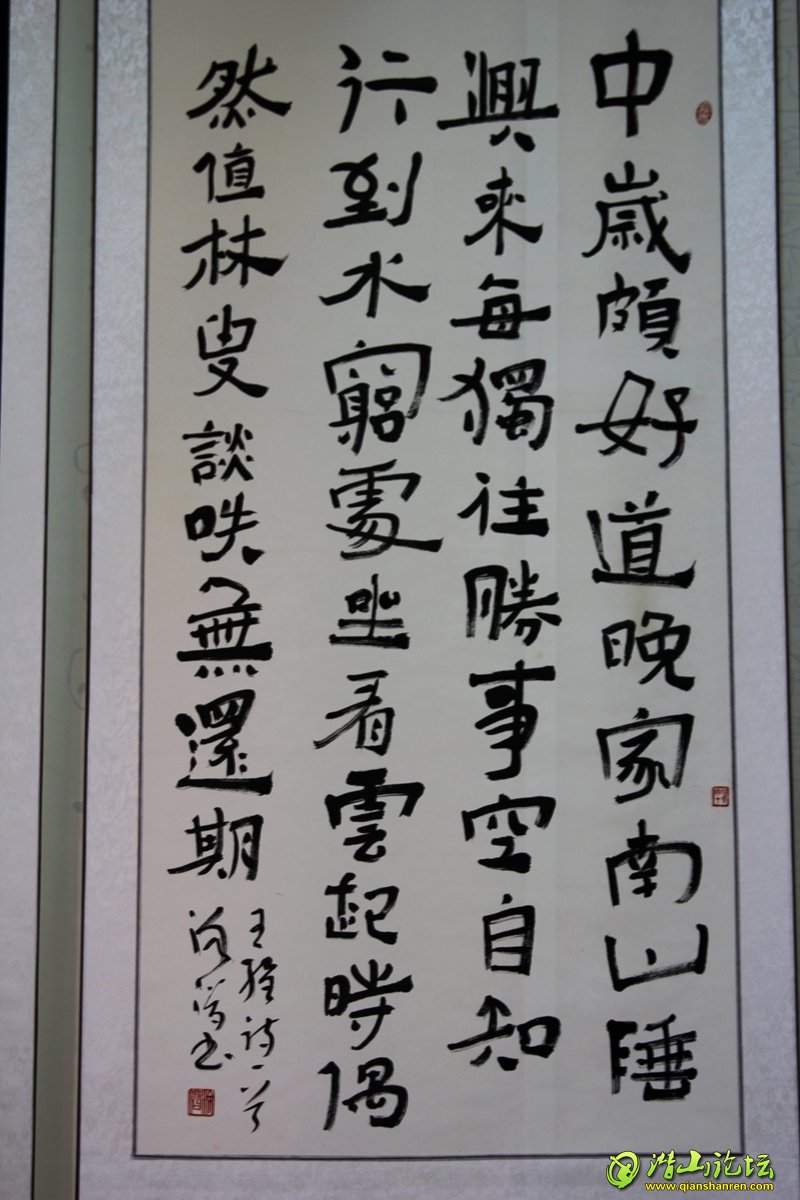 中歲頗好道晚家南山睡
興來每獨往勝事空自知
行到水窮處坐看雲起時偶
然值林叟談咲無還期
王維詩一首
书
潜山论坛
www.qianshanren.com